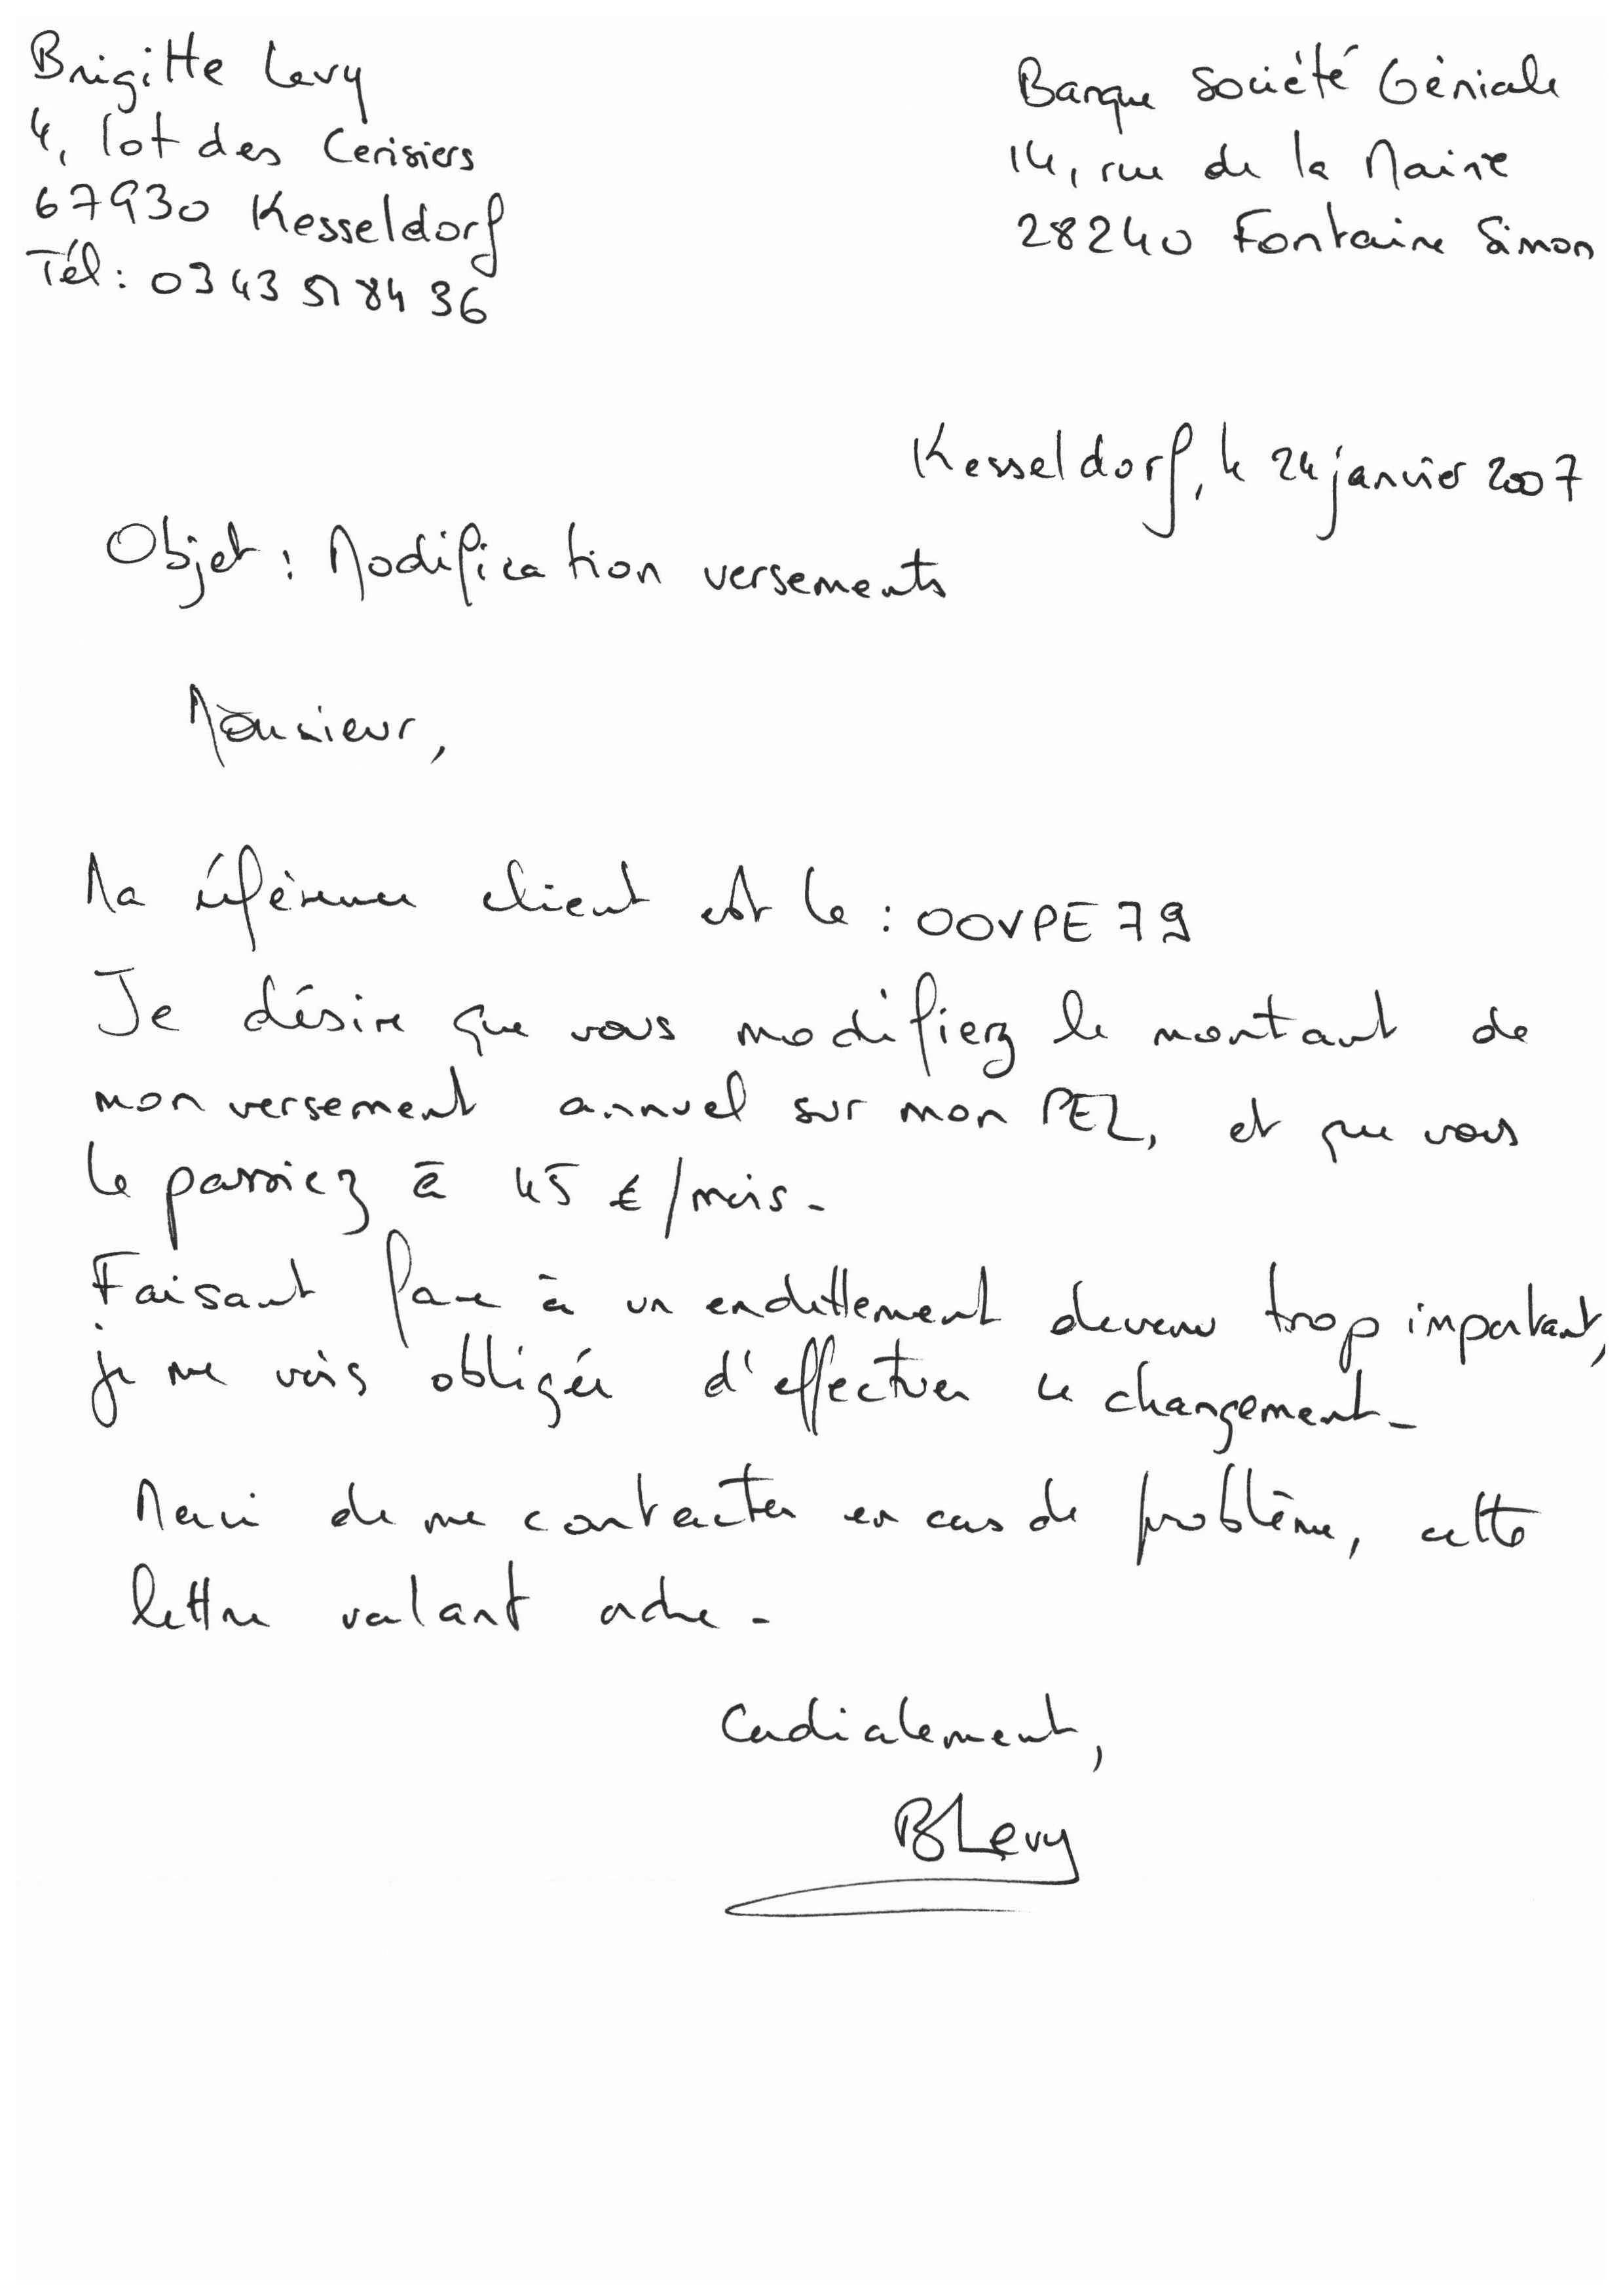 Brigitte Levy
4, lot des Cerisiers
67930 Kesseldorf
Tél : 03 43 51 84 36
Banque Société Géniale
14, rue de la Mairie
28240 Fontaine Simon
Kesseldorf, le 24 janvier 2007
Objet : Modification versements
Monsieur,
Ma référence client est le : OOVPE79
Je désire que vous modifiez le montant de
mon versement annuel sur mon PEL, et que vous
le passiez à 45 €/mois.
Faisant face à un endettement devenu trop important,
je me vois obligée d'effectuer ce changement.
Merci de me contacter en cas de problème, cette
lettre valant ordre.
Cordialement,
BLevy